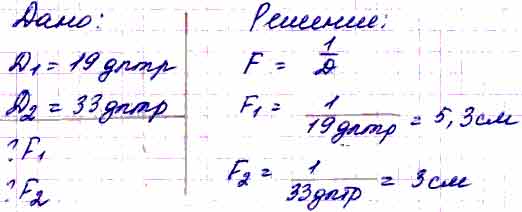 Дано:
D₁ = 19 дптр
D₂ = 33 дптр
? F₁
? F₂
Решение:
F = 1/D
F₁ = 1/19 дптр = 5,3 см
F₂ = 1/33 дптр = 3 см